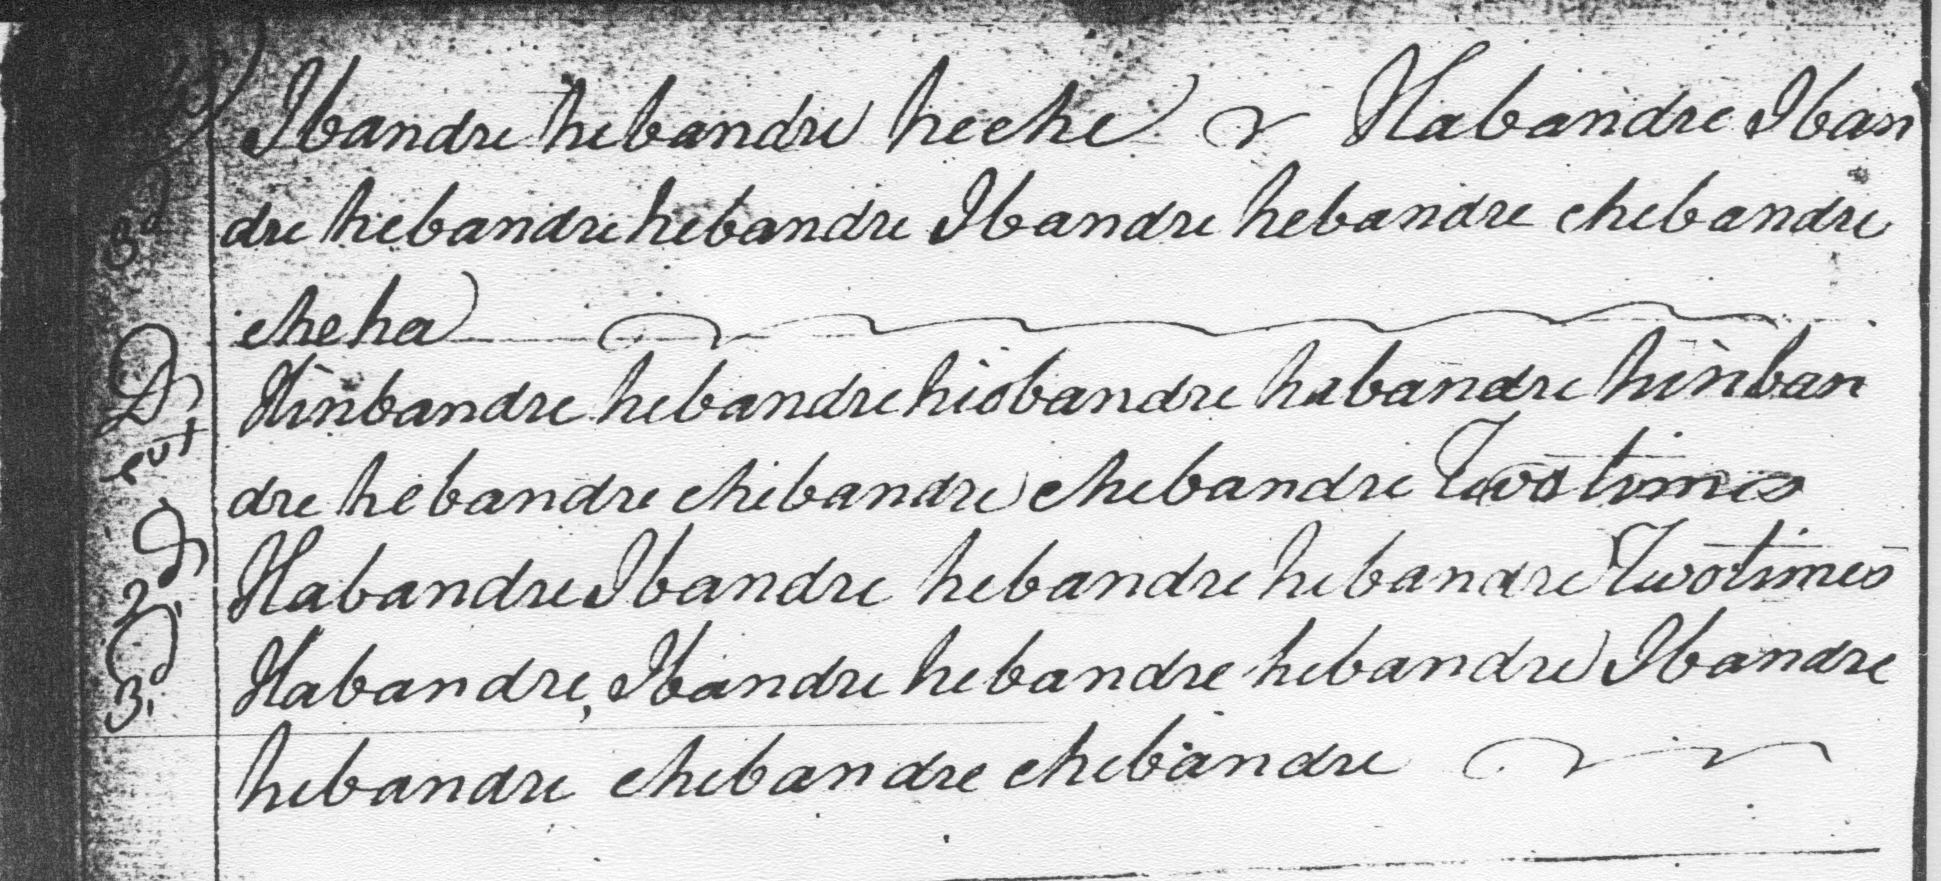 Ibandre hebandre heche Habandre Iban
3d dre hebandre hebandre Ibandre hebandre chebandre
cheha
Hinbandre hebandre hiobandre habandre hinban
dre hebandre chibandre chebandre Two times
2 Habandre Ibandre hebandre hebandre Two times
3. Habandre, Ibandre hebandre hebandre Ibandre
hebandre chebandre chebandre